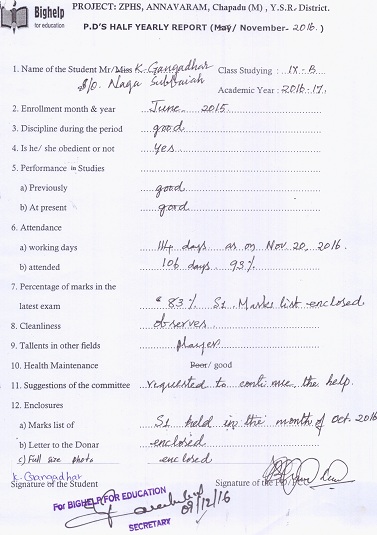 Bighelp
for education
PROJECT: ZPHS, ANNAVARAM, Chapadu (M), Y.S.R. District.
P.D'S HALF YEARLY REPORT (May/ November- 2016. )
1. Name of the Student Mr/Miss K. Gangadhar Class Studying : IX - B
S/O. Naga Subbaiah Academic Year : 2016-17.
2. Enrollment month & year June 2015
3. Discipline during the period good
4. Is he/ she obedient or not yes
5. Performance in Studies
a) Previously good
b) At present good
6. Attendance
a) working days 114 days as on Nov 20, 2016.
b) attended 106 days. 93%
7. Percentage of marks in the
latest exam 83% S1. Marks list enclosed
8. Cleanliness observes
9. Tallents in other fields player
10. Health Maintenance Poor/ good
11. Suggestions of the committee requested to continue the help.
12. Enclosures
a) Marks list of S1 held in the month of Oct. 2016
b) Letter to the Donar enclosed
c) Full size photo enclosed
K. Gangadhar
Signature of the Student Signature of the
For BIGHELP FOR EDUCATION
09/12/16
SECRETARY